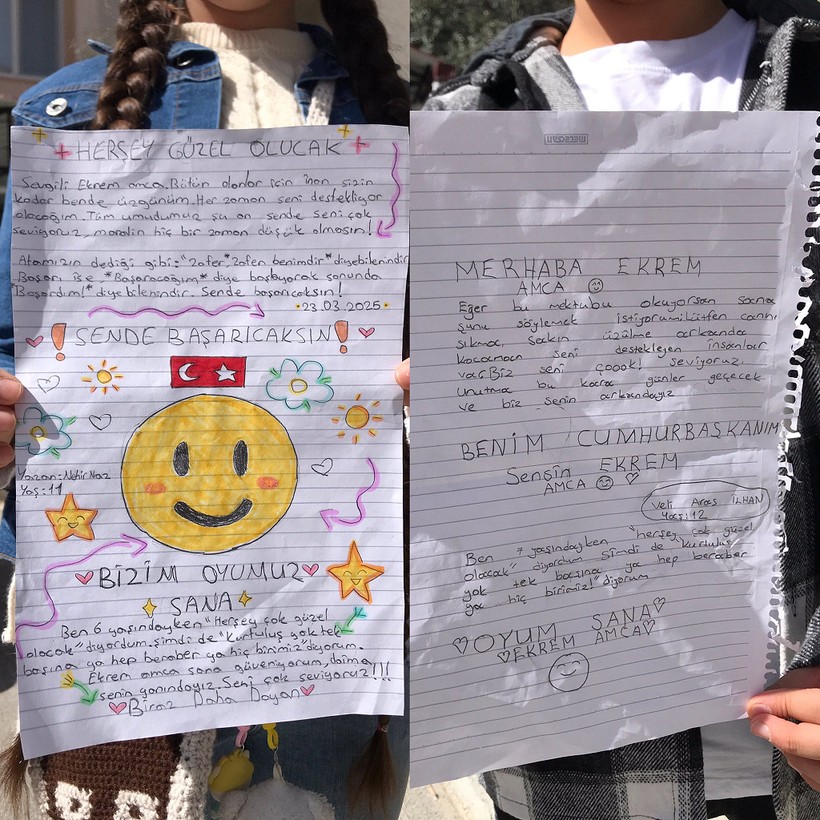 HERŞEY GÜZEL OLUCAK
Sevgili Ekrem amca. Bütün olanlar için inan sizin
kadar bende üzgünüm. Her zaman seni destekliyor
olacağım. Tüm umudumuz şu an sende seni çok
seviyoruz, moralin hiç bir zaman düşük olmasın!
Atamızın dediği gibi: "Zafer, "Zafer benimdir" diyebilenindir
Başarı ise "Başaracağım" diye başlıyarak sonunda
"Başardım!" diyebilenindir. Sende başarıcaksın!
23.03.2025
! SENDE BAŞARICAKSIN!
Yazan: Nehir Naz
Yaş: 11
BİZİM OYUMUZ
SANA
Ben 6 yaşındayken "Herşey çok güzel
olacak" diyordum. şimdi de "Kurtuluş yok tek
başına ya hep beraber ya hiç birimiz" diyorum.
Ekrem amca sana güveniyorum, daima
senin yanındayız. Seni çok seviyoruz!!!
Biraz Daha Dayan
MERHABA EKREM
AMCA
Eğer bu mektubu okuyorsan sana
şunu söylemek istiyorum: Lütfen canını
sıkma, sakın üzülme arkanda
kocaman seni destekleyen insanlar
var. Biz seni çoook! seviyoruz.
Unutma bu kara günler geçecek
ve biz senin arkandayız
BENİM CUMHURBAŞKANIM
Sensin EKREM
AMCA
Veli Aras İLHAN
Yaş: 12
Ben 7 yaşındayken "herşey çok güzel
olacak" diyordum Şimdi de "Kurtuluş
yok tek başına ya hep beraber
ya hiç birimiz!" diyorum
OYUM SANA
EKREM AMCA